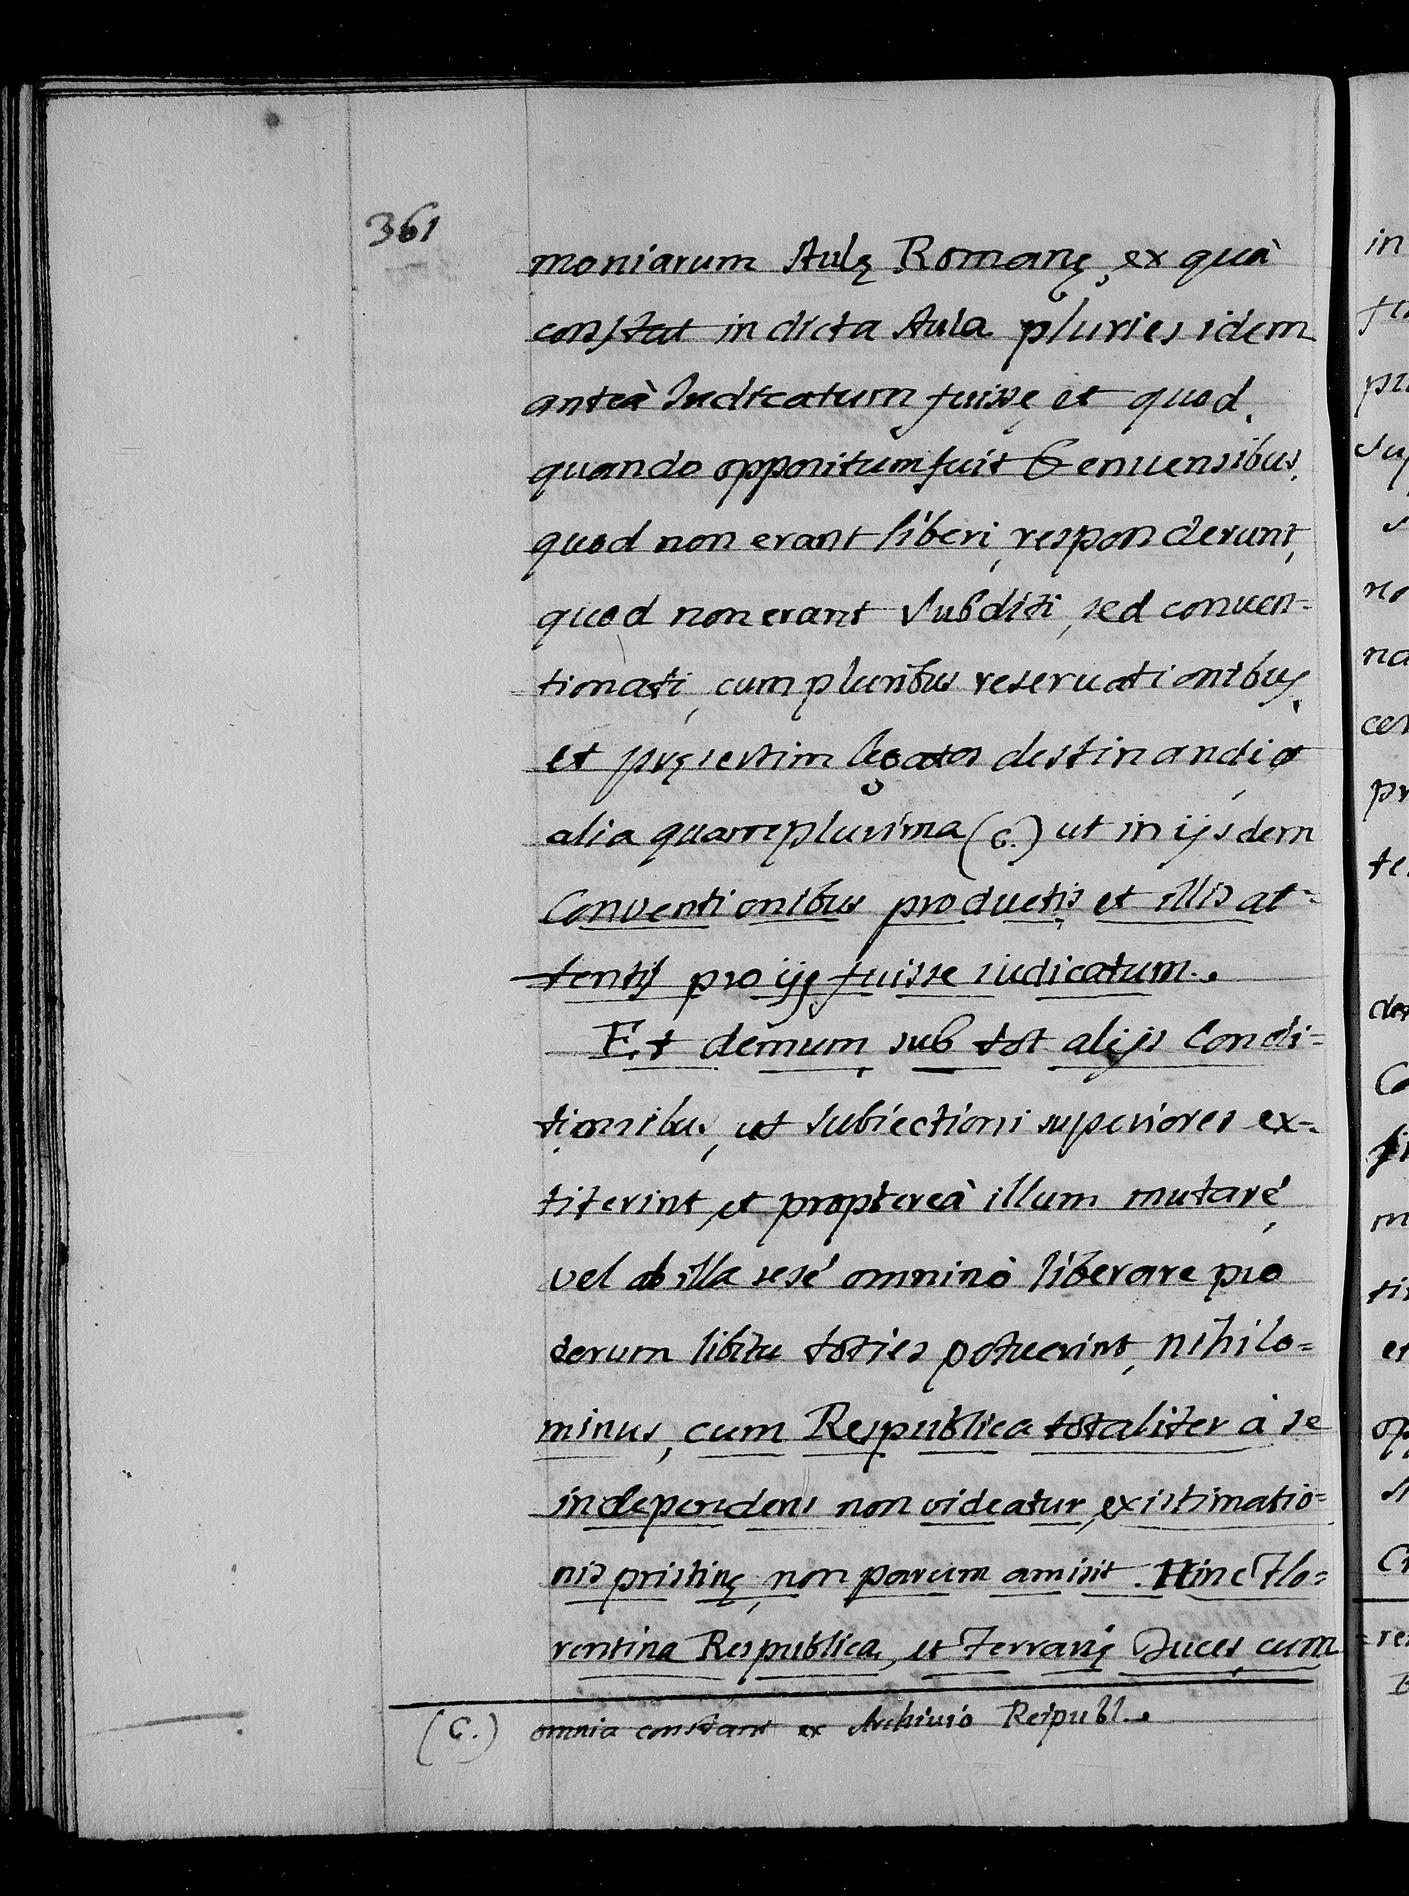 361
moniarum Aulę Romanę, ex quà
constat in dicta Aula pluries idem
anteà Iudicatum fuisse, et quod
quando oppositum fuit Genuensibus,
quod non erant liberi, responderunt,
quod non erant Subditi, sed conuen=
tionati, cum pluribus reseruationibus,
et pręsertim legatos destinandi, et
alia quamplurima (C.) ut in ijsdem
Conventionibus productis, et illis at=
tentis pro ijs fuisse iudicatum.
Et demum sub tot alijs Condi=
tionibus, ut subiectioni superiores ex=
titerint, et proptereà illum mutare,
vel ab illa sesé omninò liberare pro
eorum libitu toties potuerint, nihilo=
minus, cum Respublica totaliter à se
independens non videatur, existimatio=
nis pristinę, non parum amisit. Hinc Flo=
rentina Respublica, et Ferrarię Duces, cum
(C.) omnia constant ex Archiuio Reipubl.